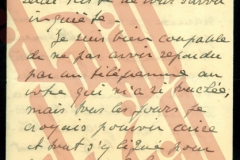 inquiète.
Je suis bien coupable
de ne pas avoir répondu
par un télégramme au
votre qui m'a si touchée,
mais tous les jours je
croyais pouvoir écrire
et tout s'y ligue pour